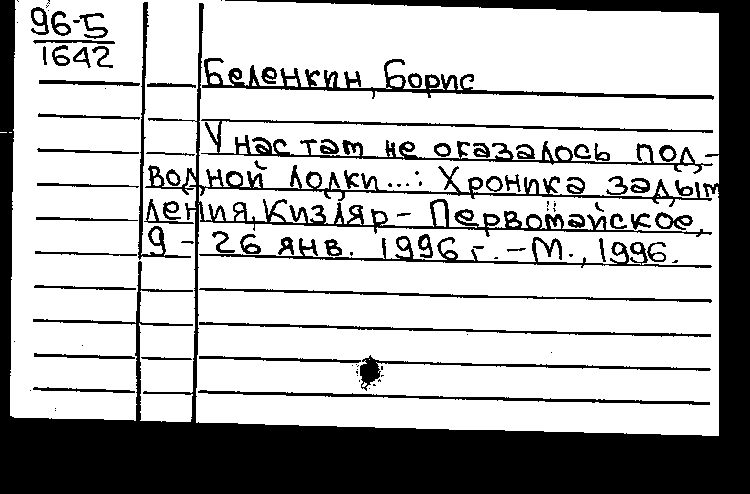 96-5
1642
Беленкин, Борис
У нас там не оказалось под-
водной лодки...: Хроника задым
ления, Кизляр - Первомайское,
9 - 26 янв. 1996 г. - М., 1996.